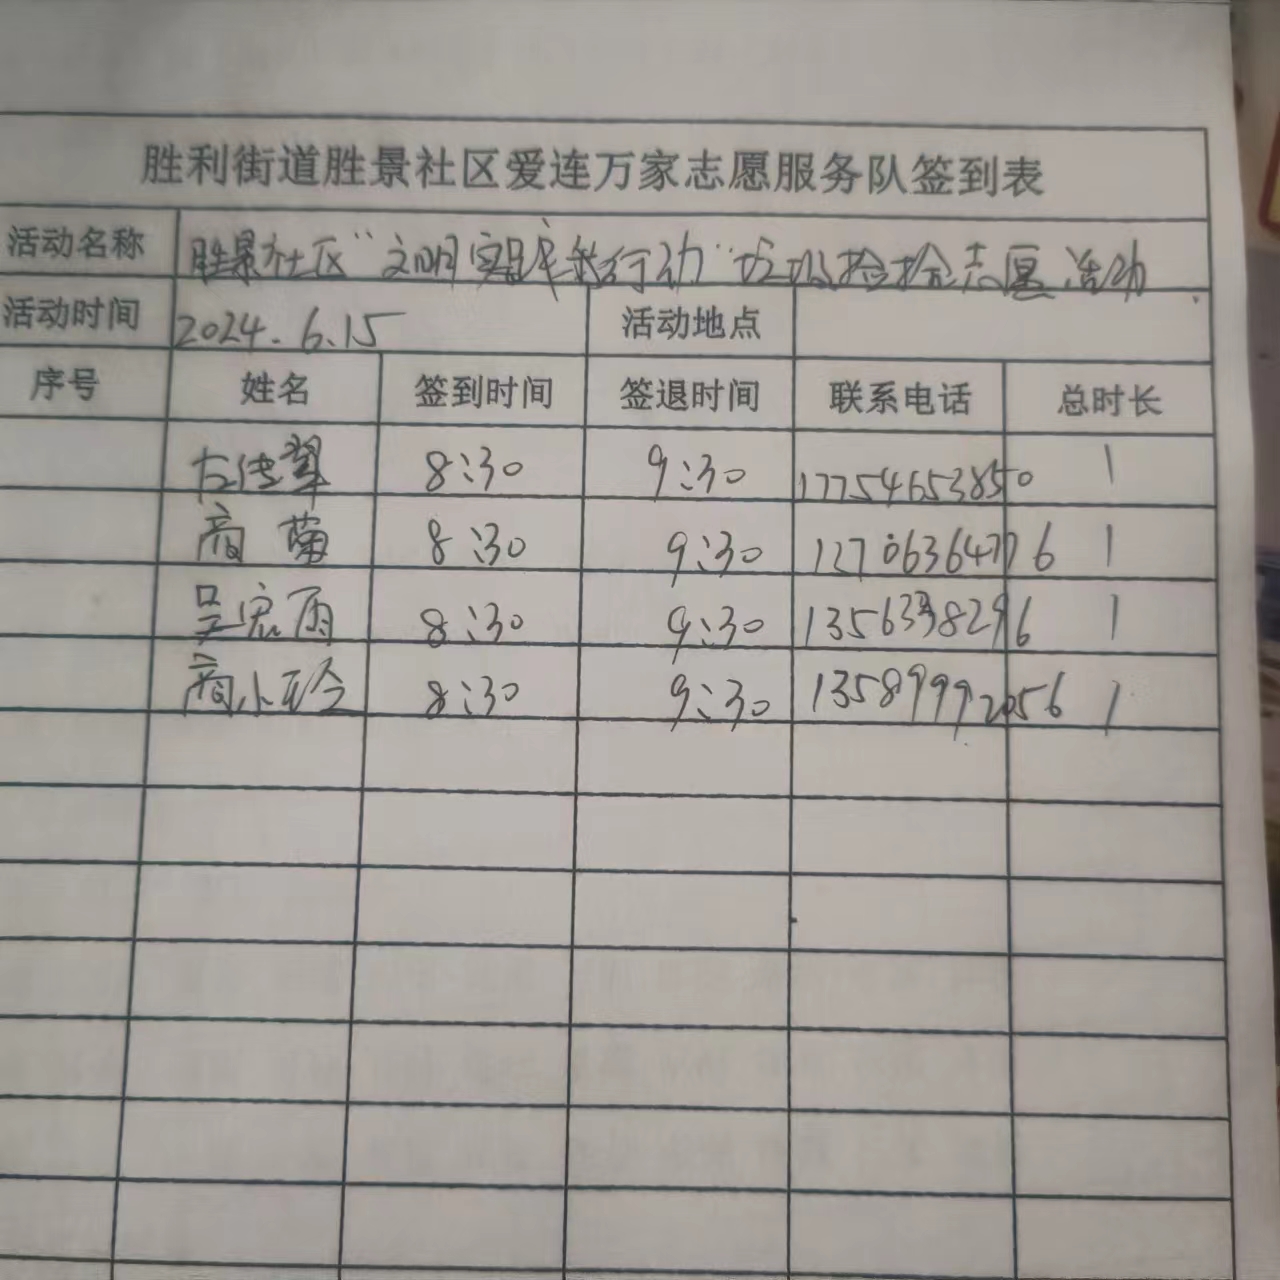 胜利街道胜景社区爱连万家志愿服务队签到表
活动名称 胜景社区“文明实践我行动”垃圾捡拾志愿活动
活动时间 2024.6.15 活动地点
序号 姓名 签到时间 签退时间 联系电话 总时长
左佳翠 8:30 9:30 17754653850 1
商菊 8:30 9:30 1
吴宏雨 8:30 9:30 1
商小玲 8:30 9:30 13589992056 1